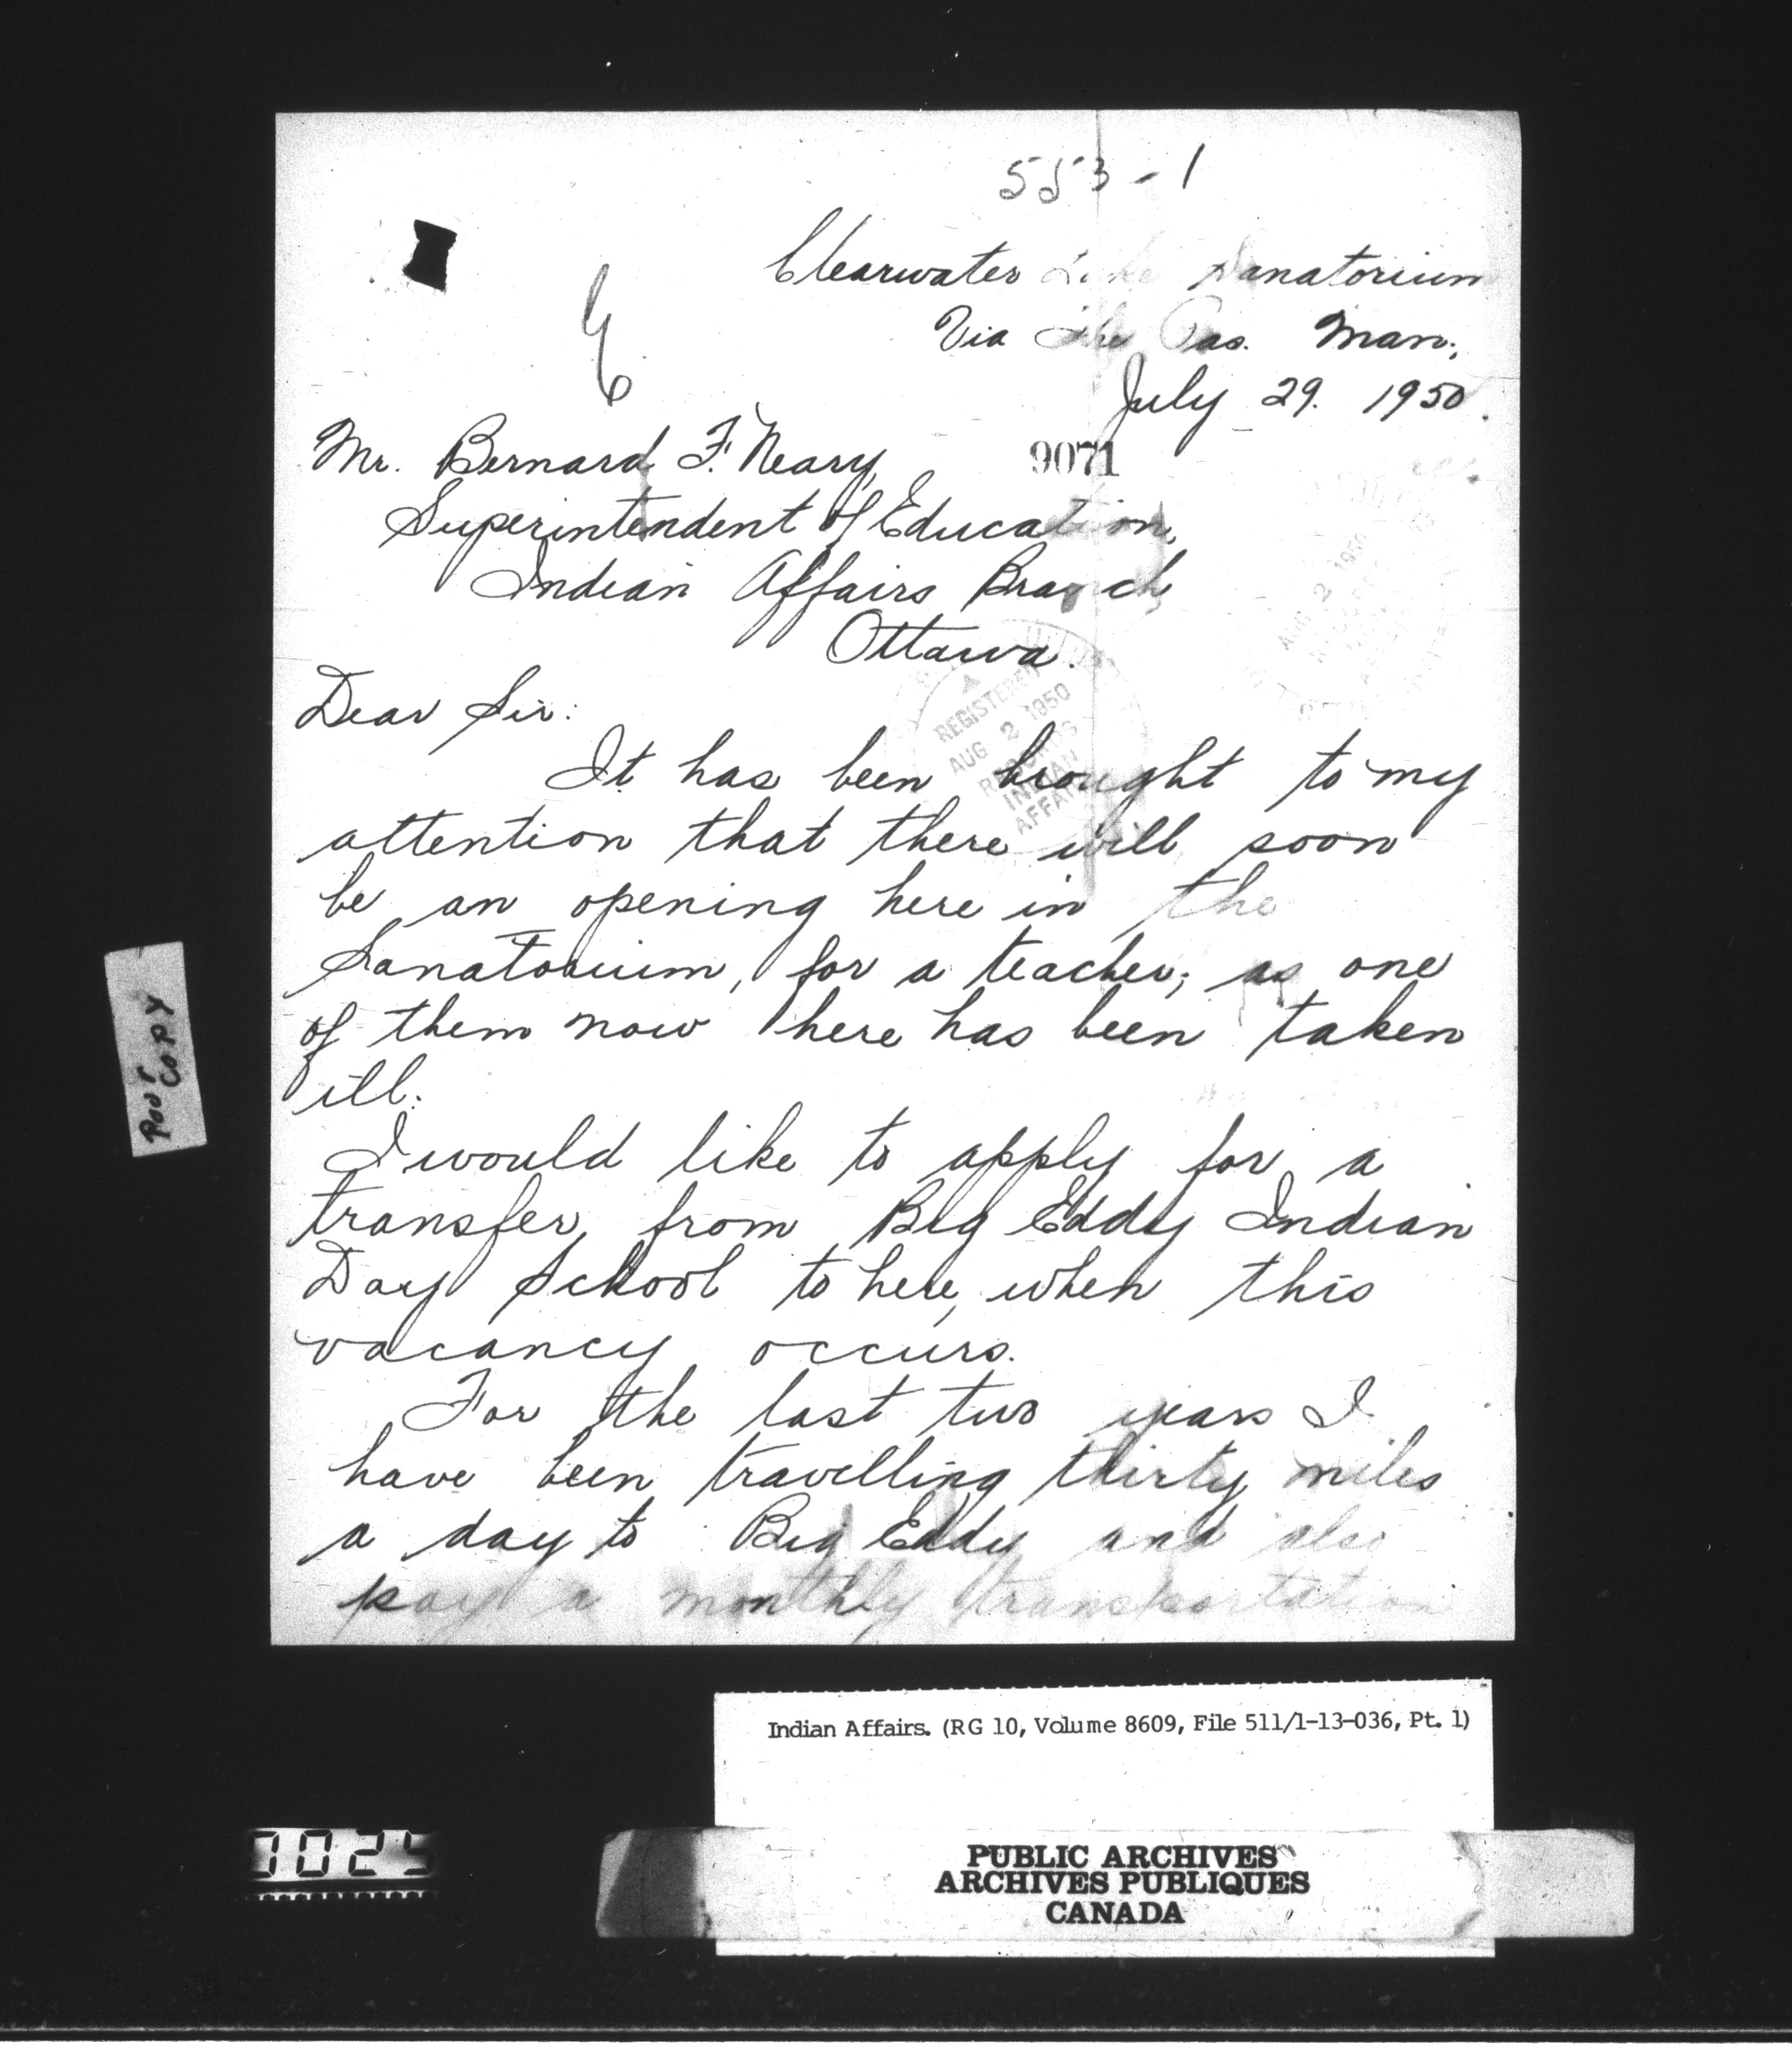 553-1
Clearwater Lake Sanatorium
Via The Pas. Man.,
July 29. 1950.
Mr. Bernard F. Neary,
9071
Superintendent of Education,
Indian Affairs Branch,
Ottawa.
REGISTERED
AUG 2 1950
RECORDS
INDIAN
AFFAIRS
AUG 2 1950
Dear Sir:
It has been brought to my
attention that there will soon
be an opening here in the
Sanatorium, for a teacher; as one
of them now here has been taken
ill.
I would like to apply for a
transfer, from Big Eddy Indian
Day School to here, when this
vacancy occurs.
For the last two years I
have been travelling thirty miles
a day to Big Eddy and also
pay a monthly transportation
Poor
COPY
Indian Affairs. (RG 10, Volume 8609, File 511/1-13-036, Pt. 1)
PUBLIC ARCHIVES
ARCHIVES PUBLIQUES
CANADA